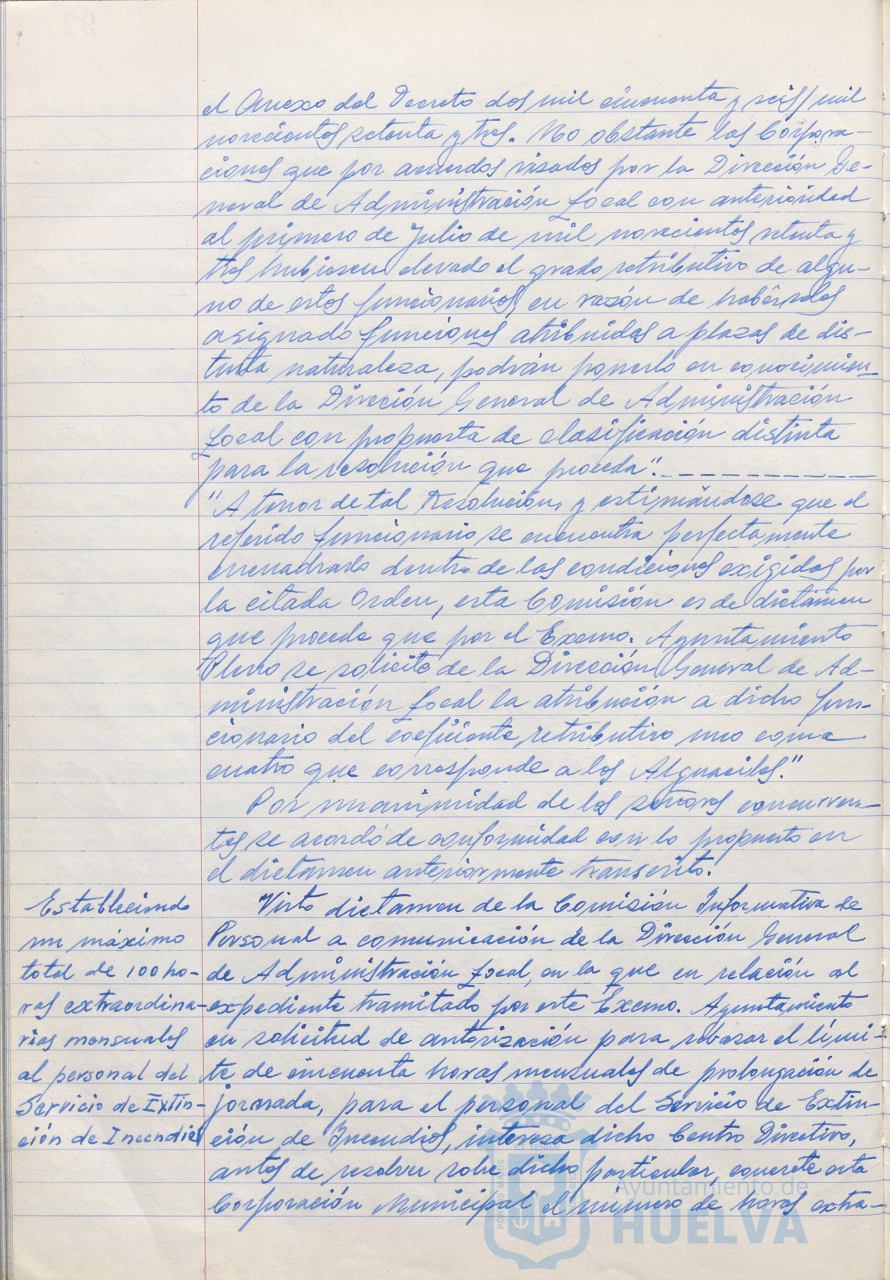 el Anexo del Decreto dos mil cincuenta y seis/mil
novecientos setenta y tres. No obstante las Corpora-
ciones que por acuerdos visados por la Dirección Ge-
neral de Administración Local con anterioridad
al primero de Julio de mil novecientos setenta y
tres hubiesen elevado el grado retributivo de algu-
no de estos funcionarios en razón de habérseles
asignado funciones atribuidas a plazas de dis-
tinta naturaleza, podrán ponerlo en conocimien-
to de la Dirección General de Administración
Local con propuesta de clasificación distinta
para la resolución que proceda".
"A tenor de tal Resolución, y estimándose que el
referido funcionario se encuentra perfectamente
encuadrado dentro de las condiciones exigidas por
la citada Orden, esta Comisión es de dictámen
que procede que por el Excmo. Ayuntamiento
Pleno se solicite de la Dirección General de Ad-
ministración Local la atribución a dicho fun-
cionario del coeficiente retributivo uno coma
cuatro que corresponde a los Alguaciles."
Por unanimidad de los señores concurren-
tes se acordó de conformidad con lo propuesto en
el dictamen anteriormente transcrito.
Estableciendo
un máximo
total de 100 ho-
ras extraordina-
rias mensuales
al personal del
Servicio de Extin-
ción de Incendios
Visto dictamen de la Comisión Informativa de
Personal a comunicación de la Dirección General
de Administración Local, en la que en relación al
expediente tramitado por este Excmo. Ayuntamiento
en solicitud de autorización para rebasar el lími-
te de cincuenta horas mensuales de prolongación de
jornada, para el personal del Servicio de Extin-
ción de Incendios, interesa dicho Centro Directivo,
antes de resolver sobre dicho particular, concrete esta
Corporación Municipal el número de horas extra-
Ayuntamiento de
HUELVA